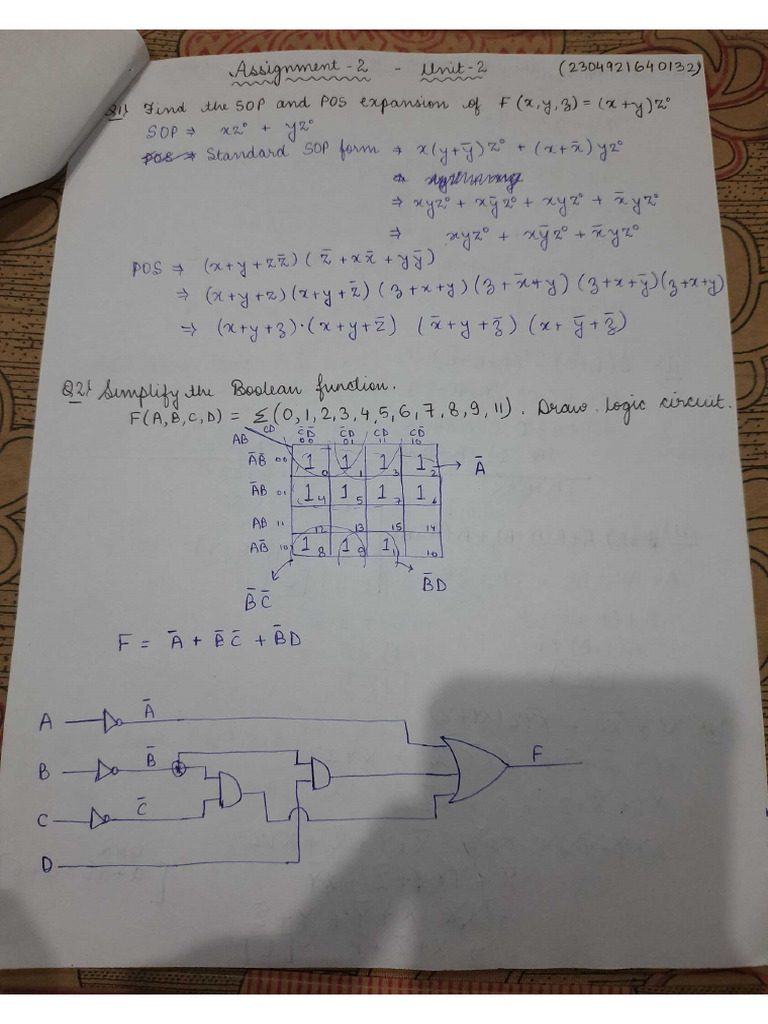 Assignment-2 - Unit-2 (2304921640132)
Q1} Find the SOP and POS expansion of F(x,y,z) = (x+y)z°
SOP ⇒ xz° + yz°
Standard SOP form ⇒ x(y+ȳ)z° + (x+x̄)yz°
⇒ xyz° + xȳz° + xyz° + x̄yz°
⇒ xyz° + xȳz° + x̄yz°
POS ⇒ (x+y+zz̄)(z̄+xx̄+yȳ)
⇒ (x+y+z)(x+y+z̄)(z+x+y)(z+x̄+y)(z+x+ȳ)(z+x+y)
⇒ (x+y+z)·(x+y+z̄) (x̄+y+z̄)(x+ȳ+z̄)
Q2} Simplify the Boolean function.
F(A,B,C,D) = Σ(0,1,2,3,4,5,6,7,8,9,11). Draw Logic circuit.
CD C̄D̄ C̄D CD CD̄
AB 00 01 11 10
ĀB̄ 00 1 0 1 1 1 3 1 2 → Ā
ĀB 01 1 4 1 5 1 7 1 6
AB 11 12 13 15 14
AB̄ 10 1 8 1 9 1 11 10
B̄C̄ B̄D
F = Ā + B̄C̄ + B̄D
A Ā
B B̄ F
C C̄
D